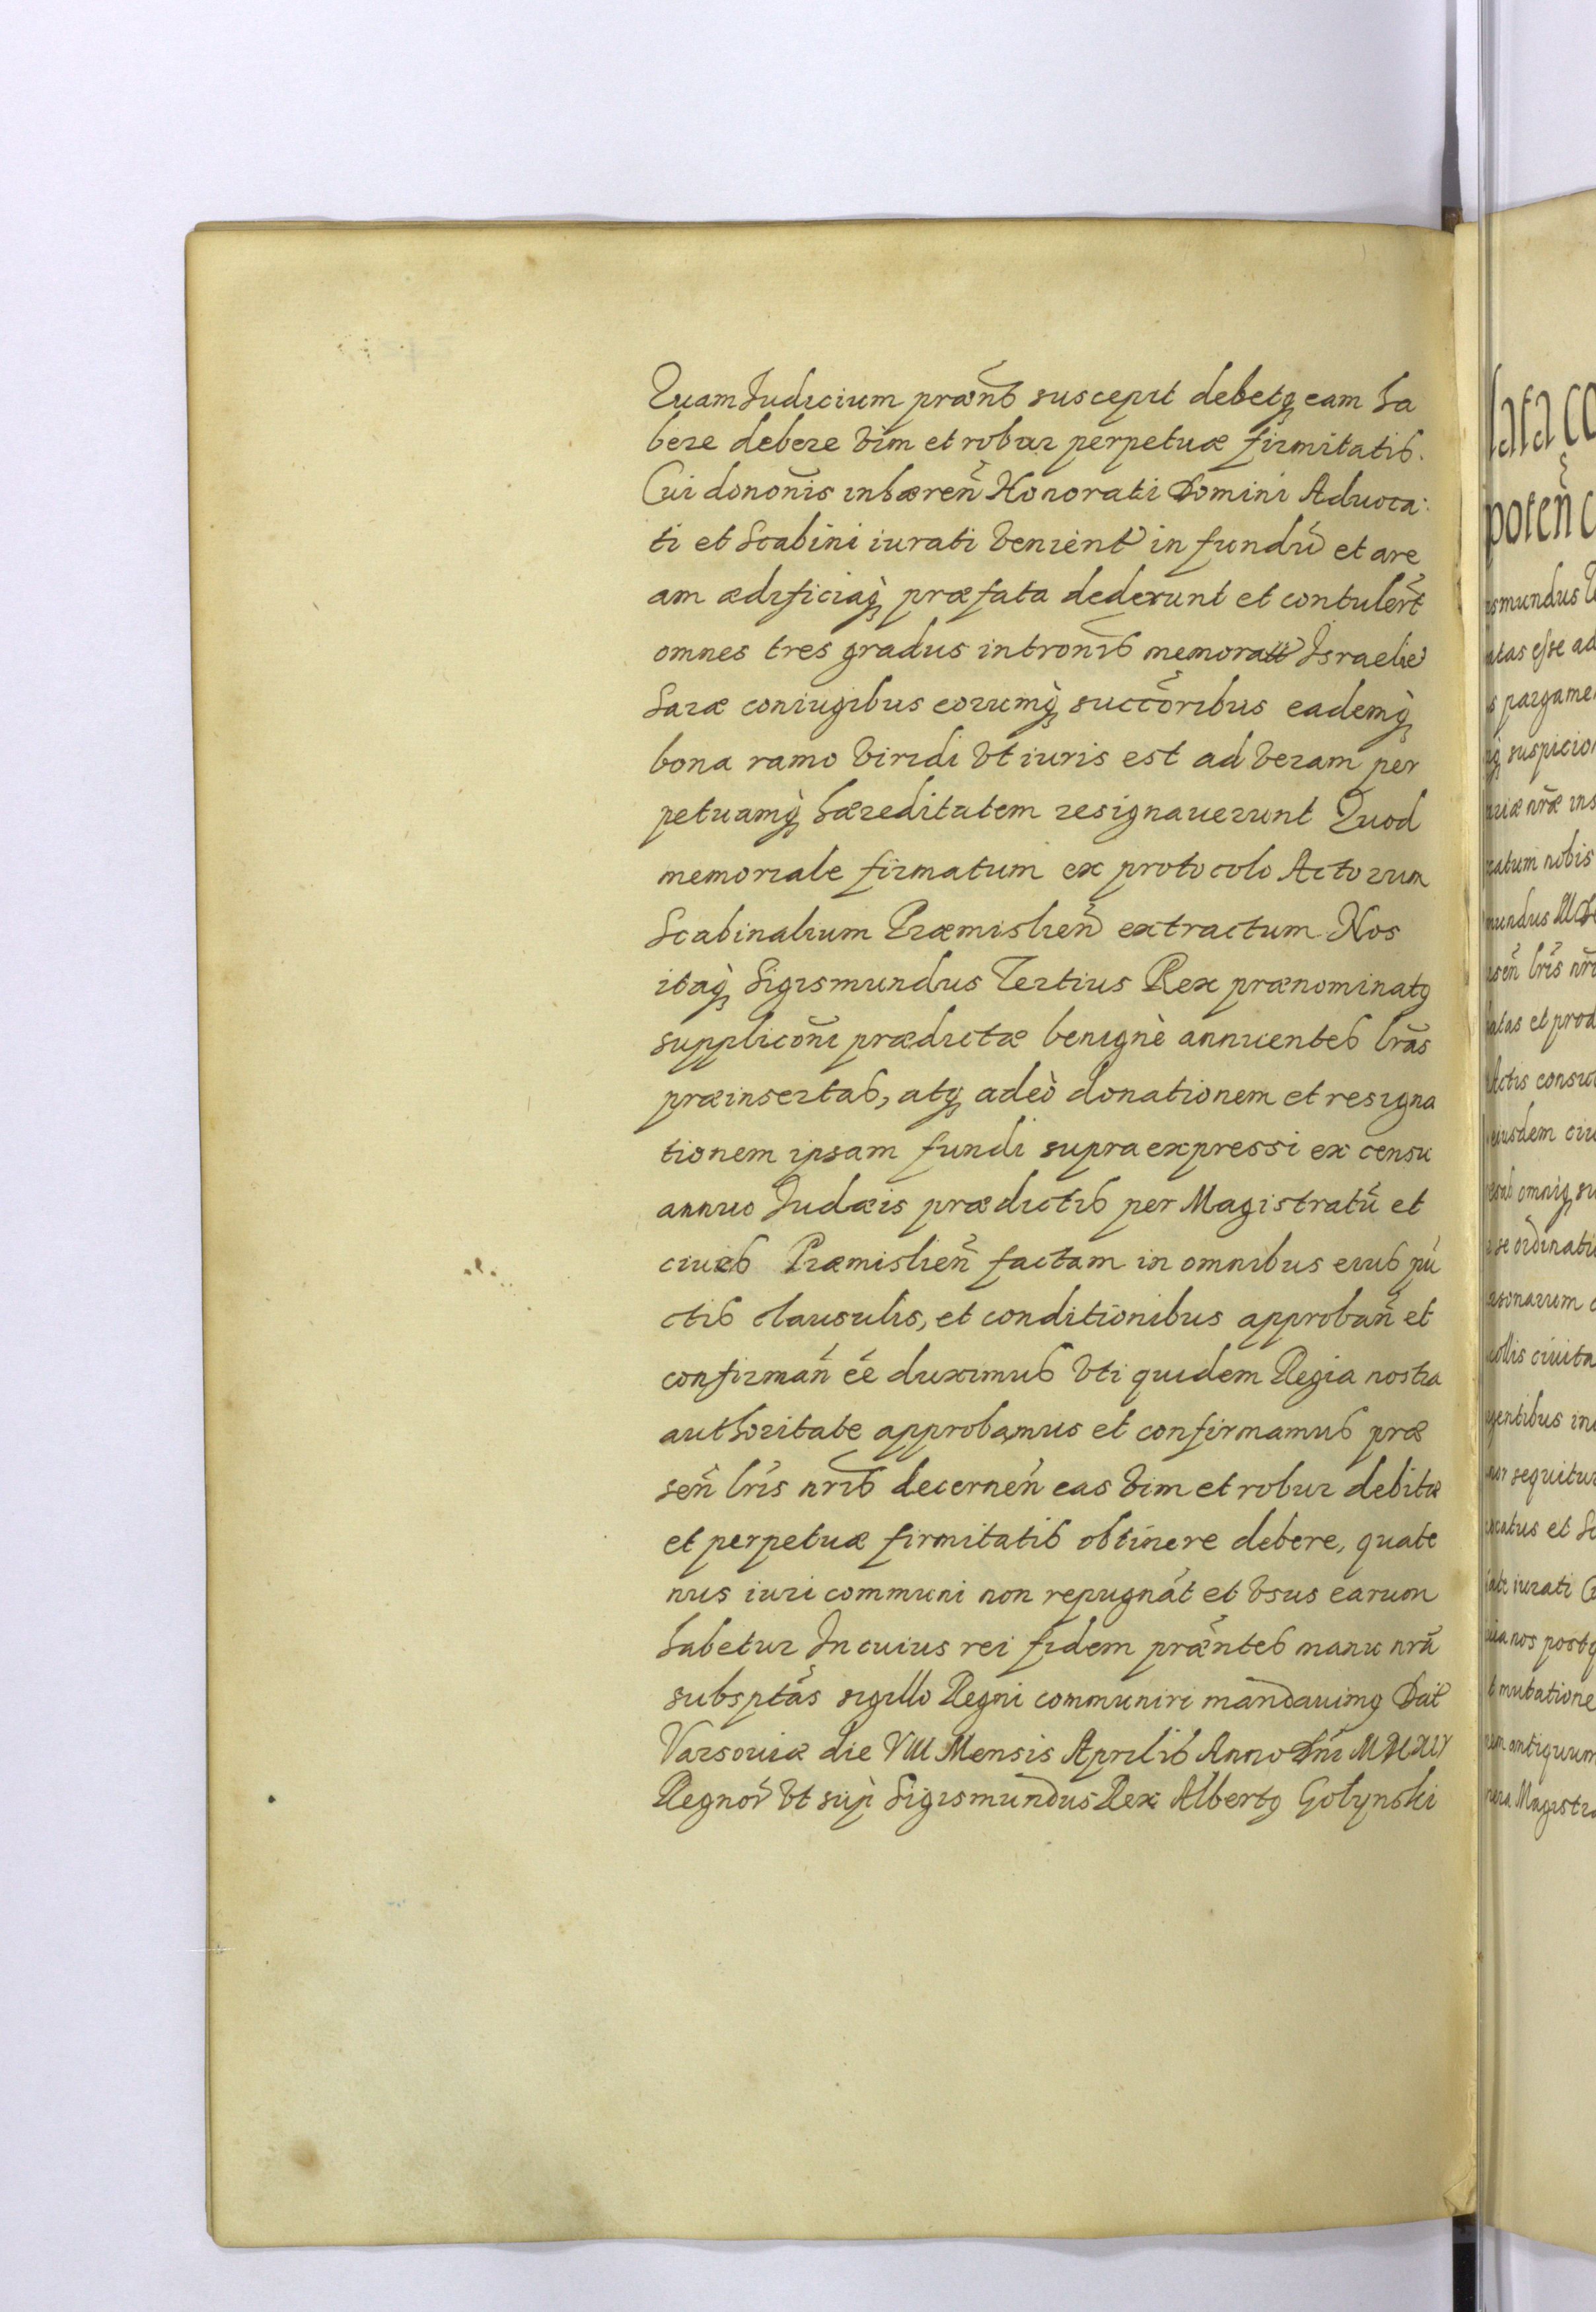 Quam Judicium præns̃ suscepit debetq́ eam ha
bere debere vim et robur perpetuæ firmitatis.
Cui donoñis inhæreñ Honorati Domini Aduoca:
ti et Scabini iurati venient̃ in fundũ et are
am ædificiaq́ præfata dederunt et contuler̃t
omnes tres gradus intronis̃ memoratt̃ Israeli e
Saræ coniugibus eorumq́ succ̃oribus eademq́
bona ramo viridi vt iuris est ad veram per
petuamq́ hæreditatem resignauerunt Quod
memoriale firmatum ex protocolo Actorum
Scabinalium Præmislieñ extractum Nos
itaq́ Sigismundus Tertius Rex prænominatꝰ
supplicoñi prædictæ benignè annuentes lr̃as
præinsertas, atq́ adeò donationem et resigna
tionem ipsam fundi supra expressi ex censu
annuo Judæis prædictis per Magistratũ et
ciues Præmislieñ factam in omnibus eius pũ
ctis clausulis, et conditionibus approbañ et
confirmañ eẽ duximus vti quidem Regia nostra
authoritate approbamus et confirmamus præ
señ lr̃is nr̃is decerneñ eas vim et robur debitæ
et perpetuæ firmitatis obtinere debere, quate
nus iuri communi non repugnãt et vsus earum
habetur In cuius rei fidem præñtes manu nr̃a
subsptãs sigillo Regni communiri mandauimꝰ Dat̃
Varsouiæ die VIII Mensis Aprilis Anno Dñi
Regnor̃ vt sup̀ Sigismundus Rex Albertꝰ Gołynski
lata co
poteñ c
ismundus Te
atas esse ad
s pargame
suspicio
uriæ nr̃æ ins
catum nobis
mundus
señ lr̃is nr̃
latas et prod
Actis consu
eiusdem ciu
omniq́ su
se ordinatu
rsonarum
ollis ciuita
gentibus in
sequitur
ocatus et Sc
iurati
nos postq
mutatione
antiquum
Magistra